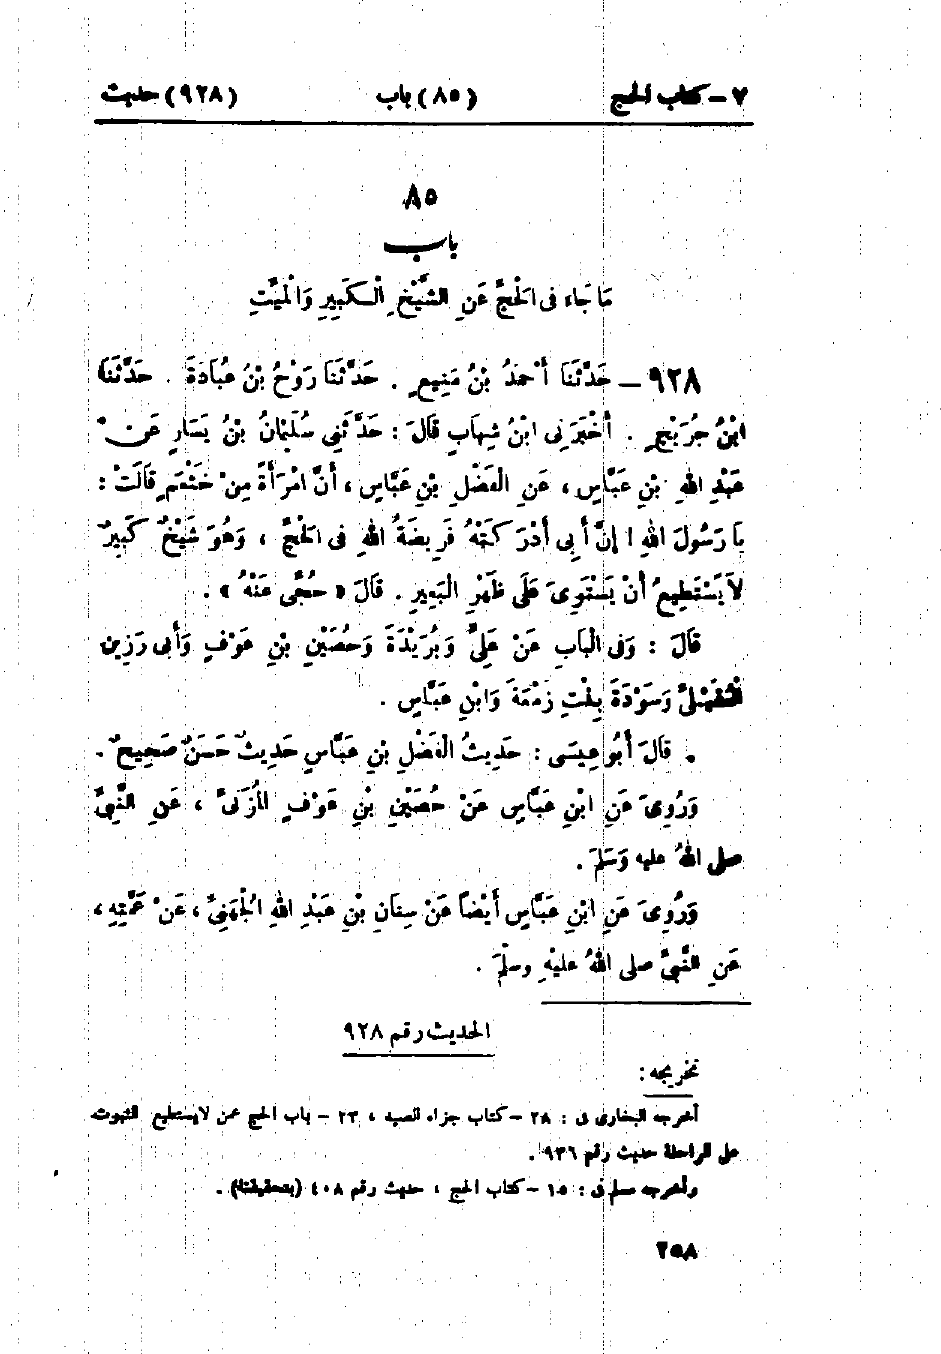 ٧ – كتاب الحج (٨٥) باب (٩٢٨) حديث
٨٥
باب
مَا جَاءَ فِى الْحَجِّ عَنِ الشَّيْخِ الْكَبِيرِ وَالْمَيِّتِ
٩٢٨ – حَدَّثَنَا أَحْمَدُ بْنُ مَنِيعٍ . حَدَّثَنَا رَوْحُ بْنُ عُبَادَةَ . حَدَّثَنَا
ابْنُ جُرَيْجٍ . أَخْبَرَنِى ابْنُ شِهَابٍ قَالَ : حَدَّثَنِى سُلَيْمَانُ بْنُ يَسَارٍ عَنْ
عَبْدِ اللهِ بْنِ عَبَّاسٍ ، عَنِ الْفَضْلِ بْنِ عَبَّاسٍ ، أَنَّ امْرَأَةً مِنْ خَثْعَمٍ قَالَتْ :
يَا رَسُولَ اللهِ ! إِنَّ أَبِى أَدْرَكَتْهُ فَرِيضَةُ اللهِ فِى الْحَجِّ ، وَهُوَ شَيْخٌ كَبِيرٌ
لاَ يَسْتَطِيعُ أَنْ يَسْتَوِىَ عَلَى ظَهْرِ الْبَعِيرِ . قَالَ « حُجِّى عَنْهُ » .
قَالَ : وَفِى الْبَابِ عَنْ عَلِىٍّ وَبُرَيْدَةَ وَحُصَيْنِ بْنِ عَوْفٍ وَأَبِى رَزِينٍ
الْعُقَيْلِىِّ وَسَوْدَةَ بِنْتِ زَمْعَةَ وَابْنِ عَبَّاسٍ .
. قَالَ أَبُو عِيسَى : حَدِيثُ الْفَضْلِ بْنِ عَبَّاسٍ حَدِيثٌ حَسَنٌ صَحِيحٌ .
وَرُوِىَ عَنِ ابْنِ عَبَّاسٍ عَنْ حُصَيْنِ بْنِ عَوْفٍ الْمُزَنِىِّ ، عَنِ النَّبِىِّ
صلى اللهُ عليه وَسَلَّمَ .
وَرُوِىَ عَنِ ابْنِ عَبَّاسٍ أَيْضًا عَنْ سِنَانِ بْنِ عَبْدِ اللهِ الْجُهَنِىِّ ، عَنْ عَمَّتِهِ ،
عَنِ النَّبِىِّ صلى اللهُ عليْهِ وسلَّمَ .
الحديث رقم ٩٢٨
تخريجه :
أخرجه البخارى فى : ٢٨ – كتاب جزاء الصيد ، ٢٣ – باب الحج عمن لا يستطيع الثبوت
على الراحلة حديث رقم ٩٣٦ .
وأخرجه مسلم فى : ١٥ – كتاب الحج ، حديث رقم ٤٠٨ (بتحقيقنا) .
٢٥٨